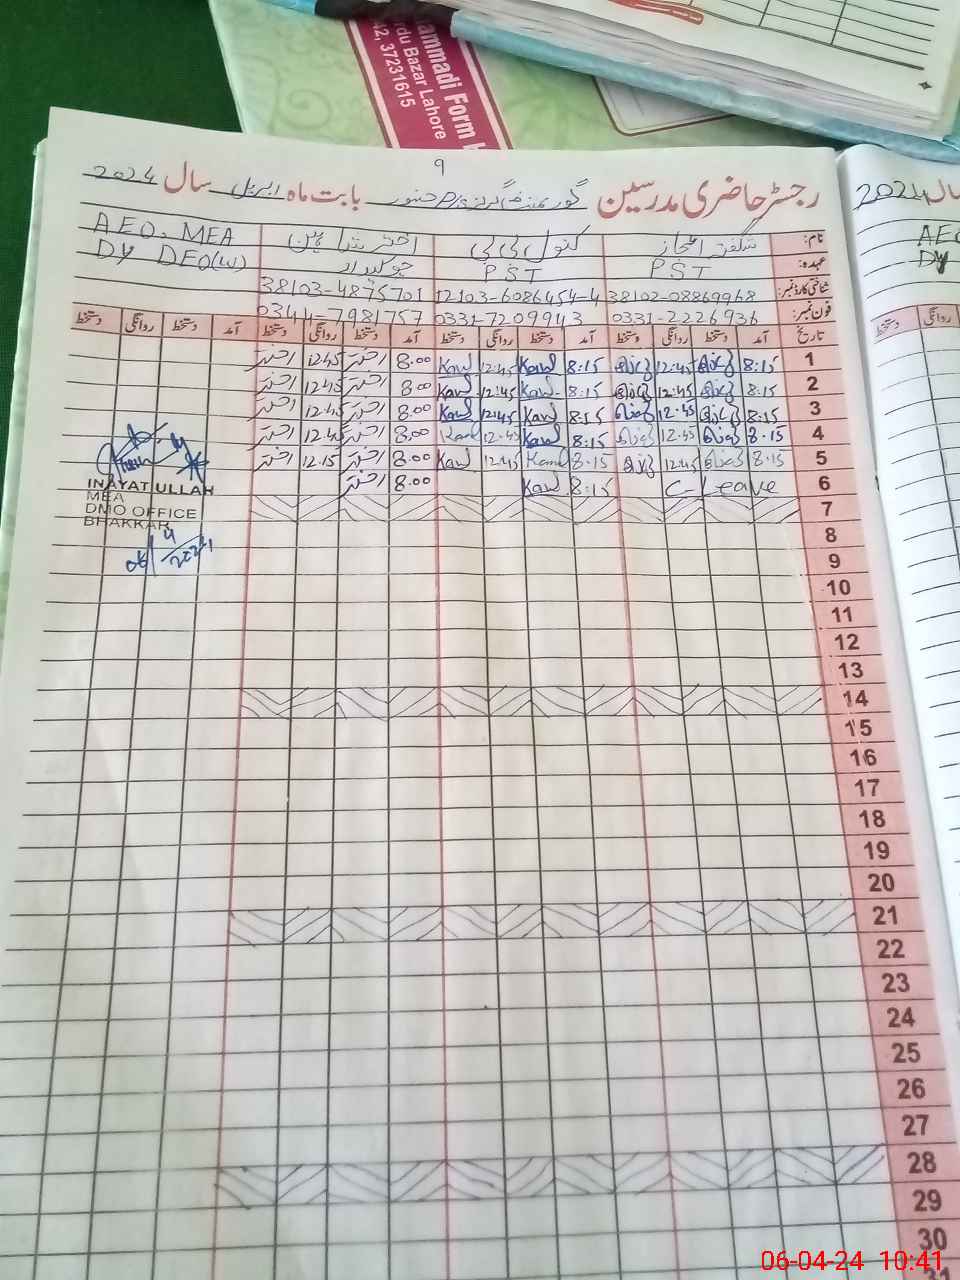 ammadi Form H
rdu Bazar Lahore
42, 37231615
9
رجسٹر حاضری مدرسین گورنمنٹ گرلز بابت ماہ اپریل سال 2024
نام: شگفتہ اعجاز کنول بی بی اختر AEO. MEA
عہدہ: PST PST چوکیدار DY DEO(W)
شناختی کارڈ نمبر: 38102-08869968 12103-6086454-4 38103-4875701
فون نمبر: 0331-2226936 0331-7209943 0344-7981757
تاریخ آمد دستخط روانگی دستخط آمد دستخط روانگی دستخط آمد دستخط روانگی دستخط آمد دستخط روانگی دستخط
1 8:15 12:45 8:15 Kawl 12:45 Kawl 8:00 اختر 12:45 اختر
2 8:15 12:45 8:15 Kawl 12:45 Kawl 8:00 اختر 12:45 اختر
3 8:15 12:45 8:15 Kawl 12:45 Kawl 8:00 اختر 12:45 اختر
4 8:15 12:45 8:15 Kawl 12:45 Kawl 8:00 اختر 12:45 اختر
5 8:15 12:45 8:15 Kawl 12:45 Kawl 8:00 اختر 12:15 اختر
6 C Leave 8:15 Kawl 8:00 اختر
7
8
9
10
11
12
13
14
15
16
17
18
19
20
21
22
23
24
25
26
27
28
29
30
31
INAYAT ULLAH
MEA
DMO OFFICE
BHAKKAR
06/4/2024
سال 2024
AEO
DY
روانگی دستخط
06-04-24 10:41